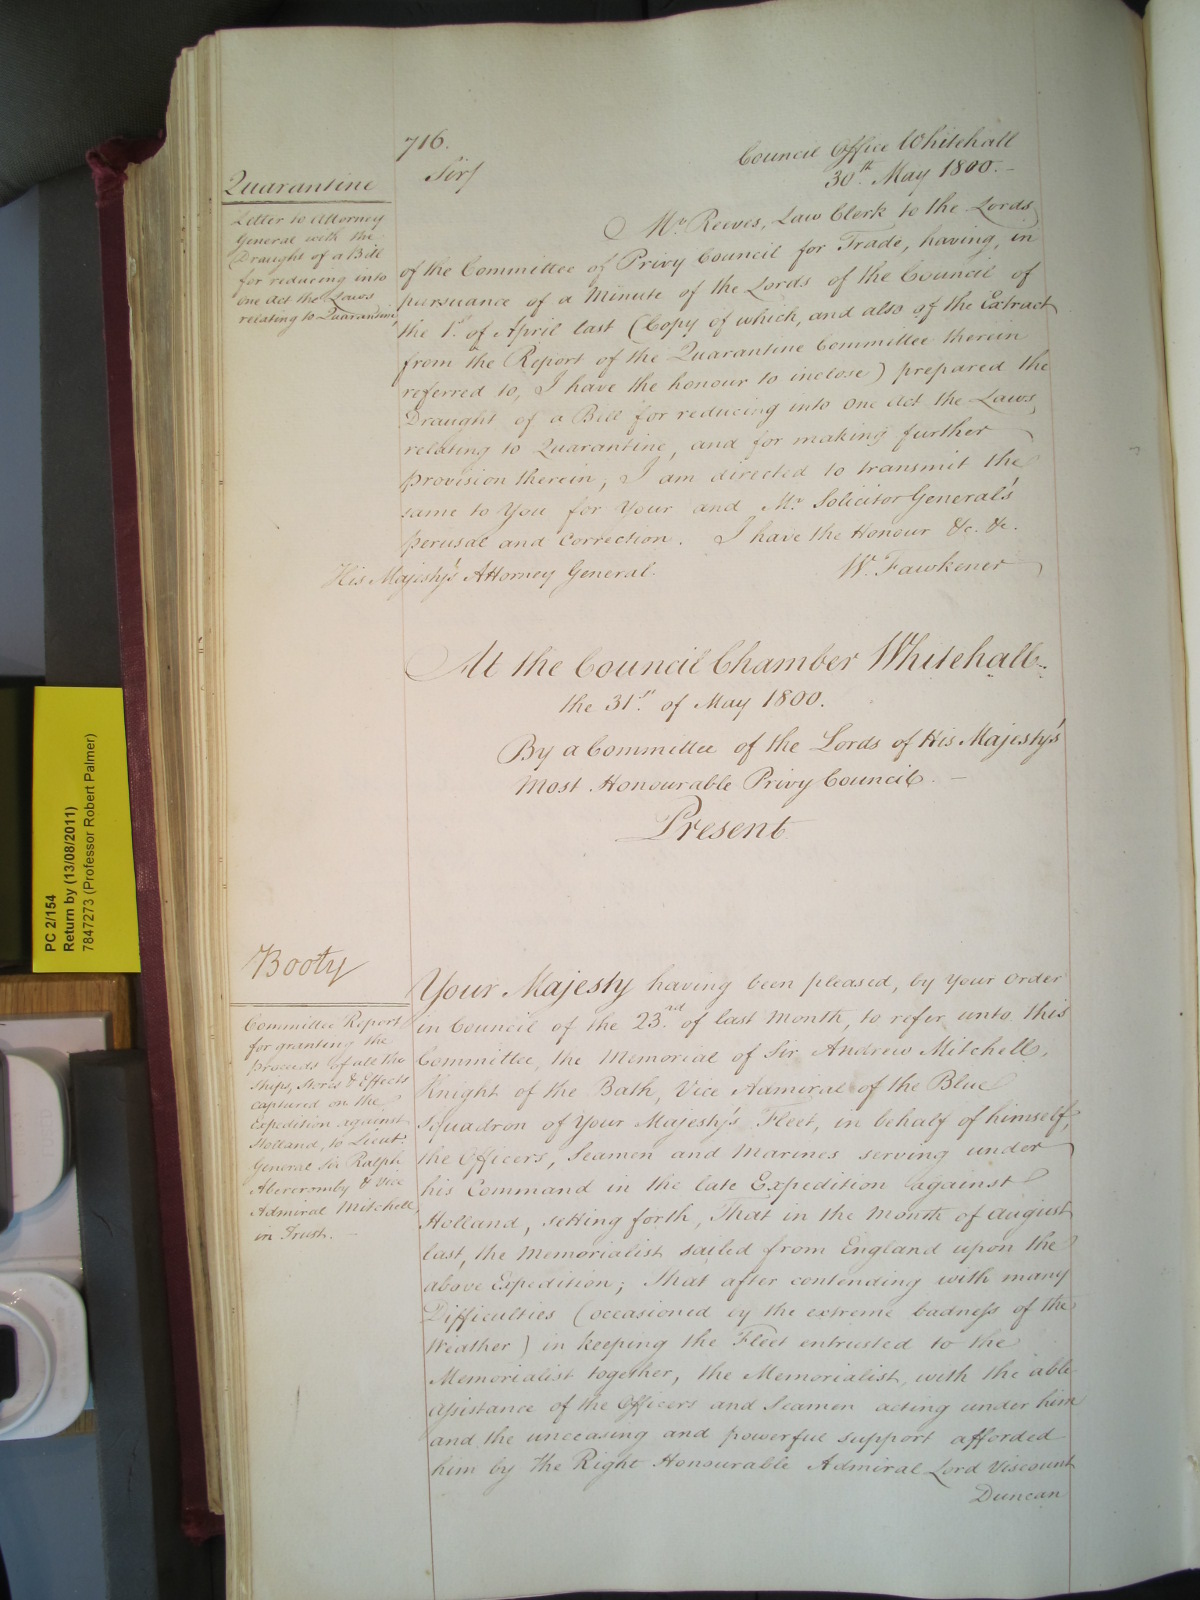 716.
Council Office Whitehall
30th May 1800. -
Sir/
Quarantine
Letter to Attorney
General with the
Draught of a Bill
for reducing into
one Act the Laws
relating to Quarantine
Mr. Reeves, Law Clerk to the Lords
of the Committee of Privy Council for Trade, having, in
pursuance of a Minute of the Lords of the Council of
the 1st. of April last (Copy of which, and also of the Extract
from the Report of the Quarantine Committee therein
referred to, I have the honour to inclose) prepared the
Draught of a Bill for reducing into one Act the Laws
relating to Quarantine, and for making further
provision therein, I am directed to transmit the
same to You for Your and Mr. Solicitor General's
perusal and correction. I have the Honour &c. &c.
His Majesty's Attorney General.
W. Fawkener
At the Council Chamber Whitehall.
the 31st. of May 1800.
By a Committee of the Lords of His Majesty's
Most Honourable Privy Council. -
Present
PC 2/154
Return by (13/08/2011)
7847273 (Professor Robert Palmer)
Booty
Committee Report
for granting the
proceeds of all the
Ships, Stores & Effects
captured on the
Expedition against
Holland, to Lieut.
General Sir Ralph
Abercromby & Vice
Admiral Mitchell
in Trust. -
Your Majesty having been pleased, by Your Order
in Council of the 23.nd of last Month, to refer unto this
Committee, the Memorial of Sir Andrew Mitchell,
Knight of the Bath, Vice Admiral of the Blue
Squadron of Your Majesty's Fleet, in behalf of himself,
the Officers, Seamen and Marines serving under
his Command in the late Expedition against
Holland, setting forth, That in the Month of August
last, the Memorialist sailed from England upon the
above Expedition; that after contending with many
Difficulties (occasioned by the extreme badness of the
Weather) in keeping the Fleet entrusted to the
Memorialist together, the Memorialist, with the able
Assistance of the Officers and Seamen acting under him
and the unceasing and powerful support afforded
him by the Right Honourable Admiral Lord Viscount
Duncan